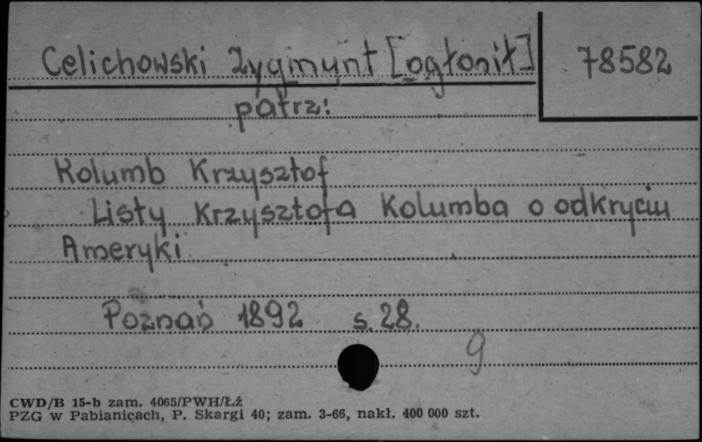 Celichowski Zygmunt [ogłosił] 78582
patrz:
Kolumb Krzysztof
Listy Krzysztofa Kolumba o odkryciu
Ameryki
Poznań 1892 s. 28.
9
CWD/B 15-b zam. 4065/PWH/Łź
PZG w Pabianicach, P. Skargi 40; zam. 3-66, nakł. 400 000 szt.